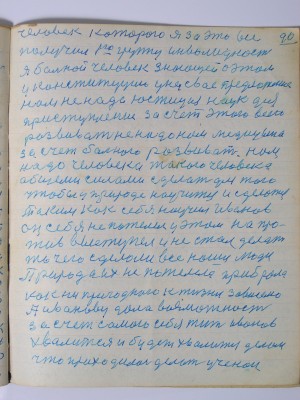 человек которого я за это все 90
получил 1ю группу инвалидност
я болной человек знающей о этом
у конституции у нас две предложение
нам не нада юстиция наук для
приступлении за счет этого всего
развиват не надо нам медицина
за счет болного развиват. нам
надо человека такого человека
общеми силами сделат для того
чтобы в природе научит и сделат
таким как себя научил Иванов
он себя не пожелел у этом на про-
тив выступил и не стал делат
то чего сделоли все наши люди
Природа их не пожелела прибрала
как ни пригодного к жизни завсегда
А иванову дала возможност
за счет самого себя жит иванов
хвалится и будет хвалится делом
что приходилос делат ученой